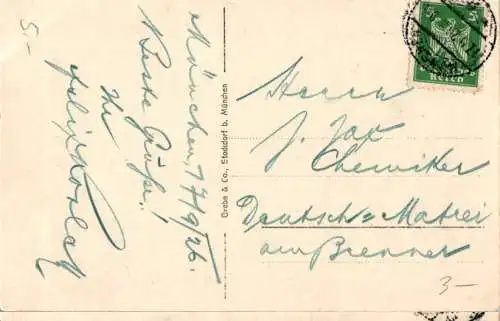 5.-
München, 17/9/26.
Beste Grüße!
Ihr
Grebe & Co., Stockdorf b. München
5
Reich
Herrn
J. Jax
Chemiker
Deutsch=Matrei
am Brenner
3-